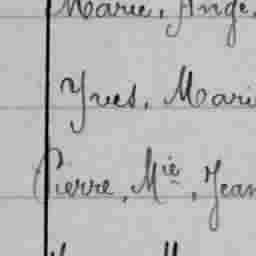 Marie, Ange.
Yves, Mari
Pierre, Mie, Jean